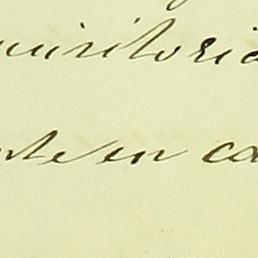 uisitoria
nte en ca